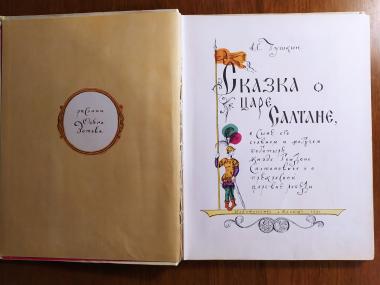 рисунки
Олега
Зотова
А.С. Пушкин
Сказка о
царе
Салтане,
о сыне его
славном и могучем
богатыре
князе Гвидоне
Салтановиче и о
прекрасной
царевне лебеди